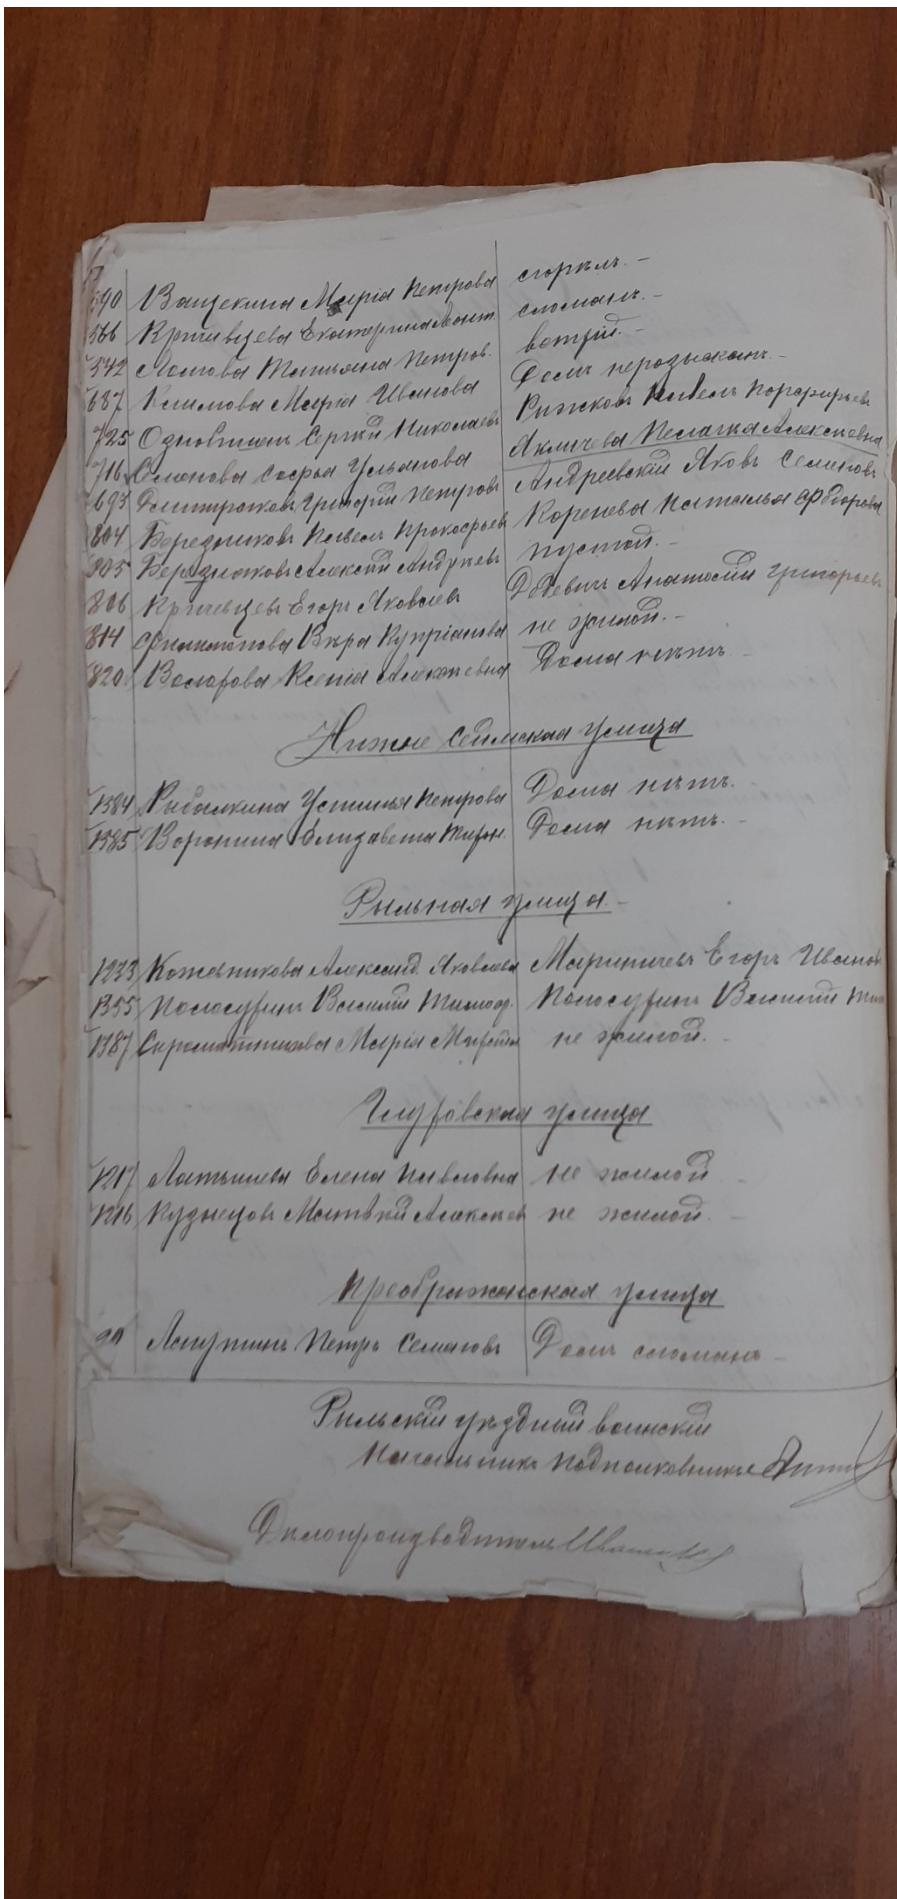 590 Ващекина Марія Петрова сгорѣлъ. –
566 Кривцева Екатерина Леонт. сломанъ. –
542 Ломова Татьяна Петров. ветхій. –
687 Климова Марія Иванова Домъ не розысканъ. –
725 Сергѣй Николаевъ Рижковъ Павелъ Порфирьевъ
716 Семенова Софья Ульянова Акличева Пелагея Алексѣевна
693 Дмитраковъ Григорій Петровъ Андреевскій Яковъ Семеновъ
804 Березниковъ Павелъ Прокофьевъ Коренева Наталья Ѳедорова
805 Березняковъ Алексѣй Андреевъ пустой. –
806 Кривцевъ Егоръ Яковлевъ Анатолій Григорьевъ
814 Филимонова Вѣра Купріанова не жилой. –
820 Ксенія Алексѣевна Дома нѣтъ –
Нижне Сеймская улица
1384 Рыбалкина Устинья Петрова Дома нѣтъ. –
1385 Воронина Елизавета Дома нѣтъ. –
Рыльная улица. –
1233 Кожевникова Александ. Яковлева Мариничевъ Егоръ Иванов
1355 Полосухинъ Василій Тимоѳ. Полосухинъ Василій Тим
1387 Сыромятникова Марія не жилой. –
Глуховская улица
1217 Латышева Елена Павловна не жилой –
1216 Кузнецовъ Матвѣй Алексѣев не жилой. –
Преображенская улица
Лопутинъ Петръ Семеновъ Домъ сломанъ –
Рыльскій уѣздный воинскій
Начальникъ Подполковникъ
Дѣлопроизводитель